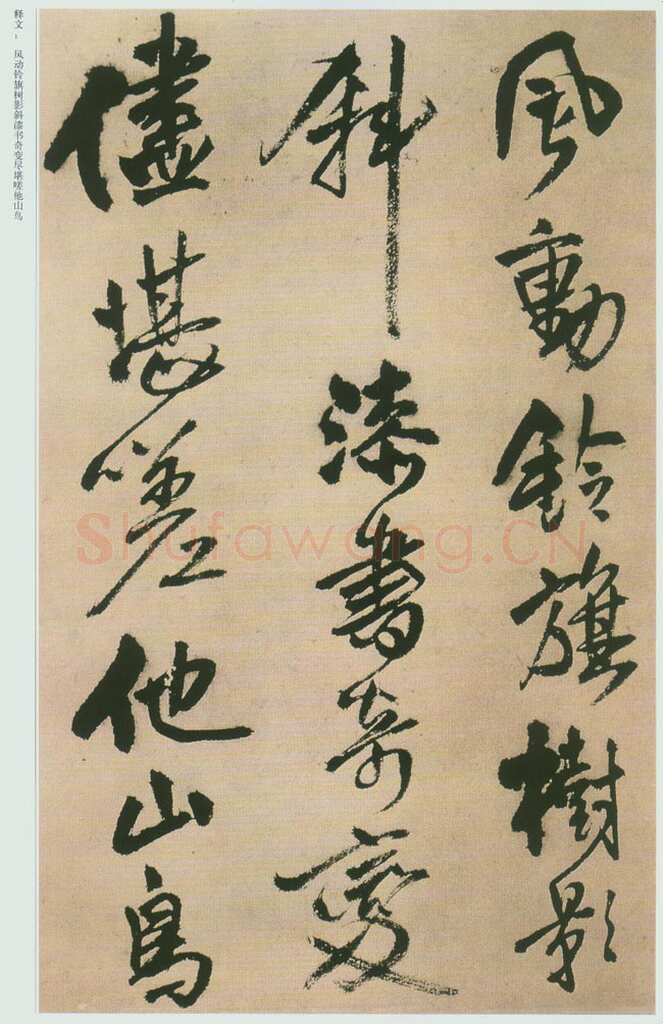 風動鈴旗樹影
斜漆書奇變
儘堪嗟他山鳥
释文： 风动铃旗树影斜漆书奇变尽堪嗟他山鸟
Shufawang.CN